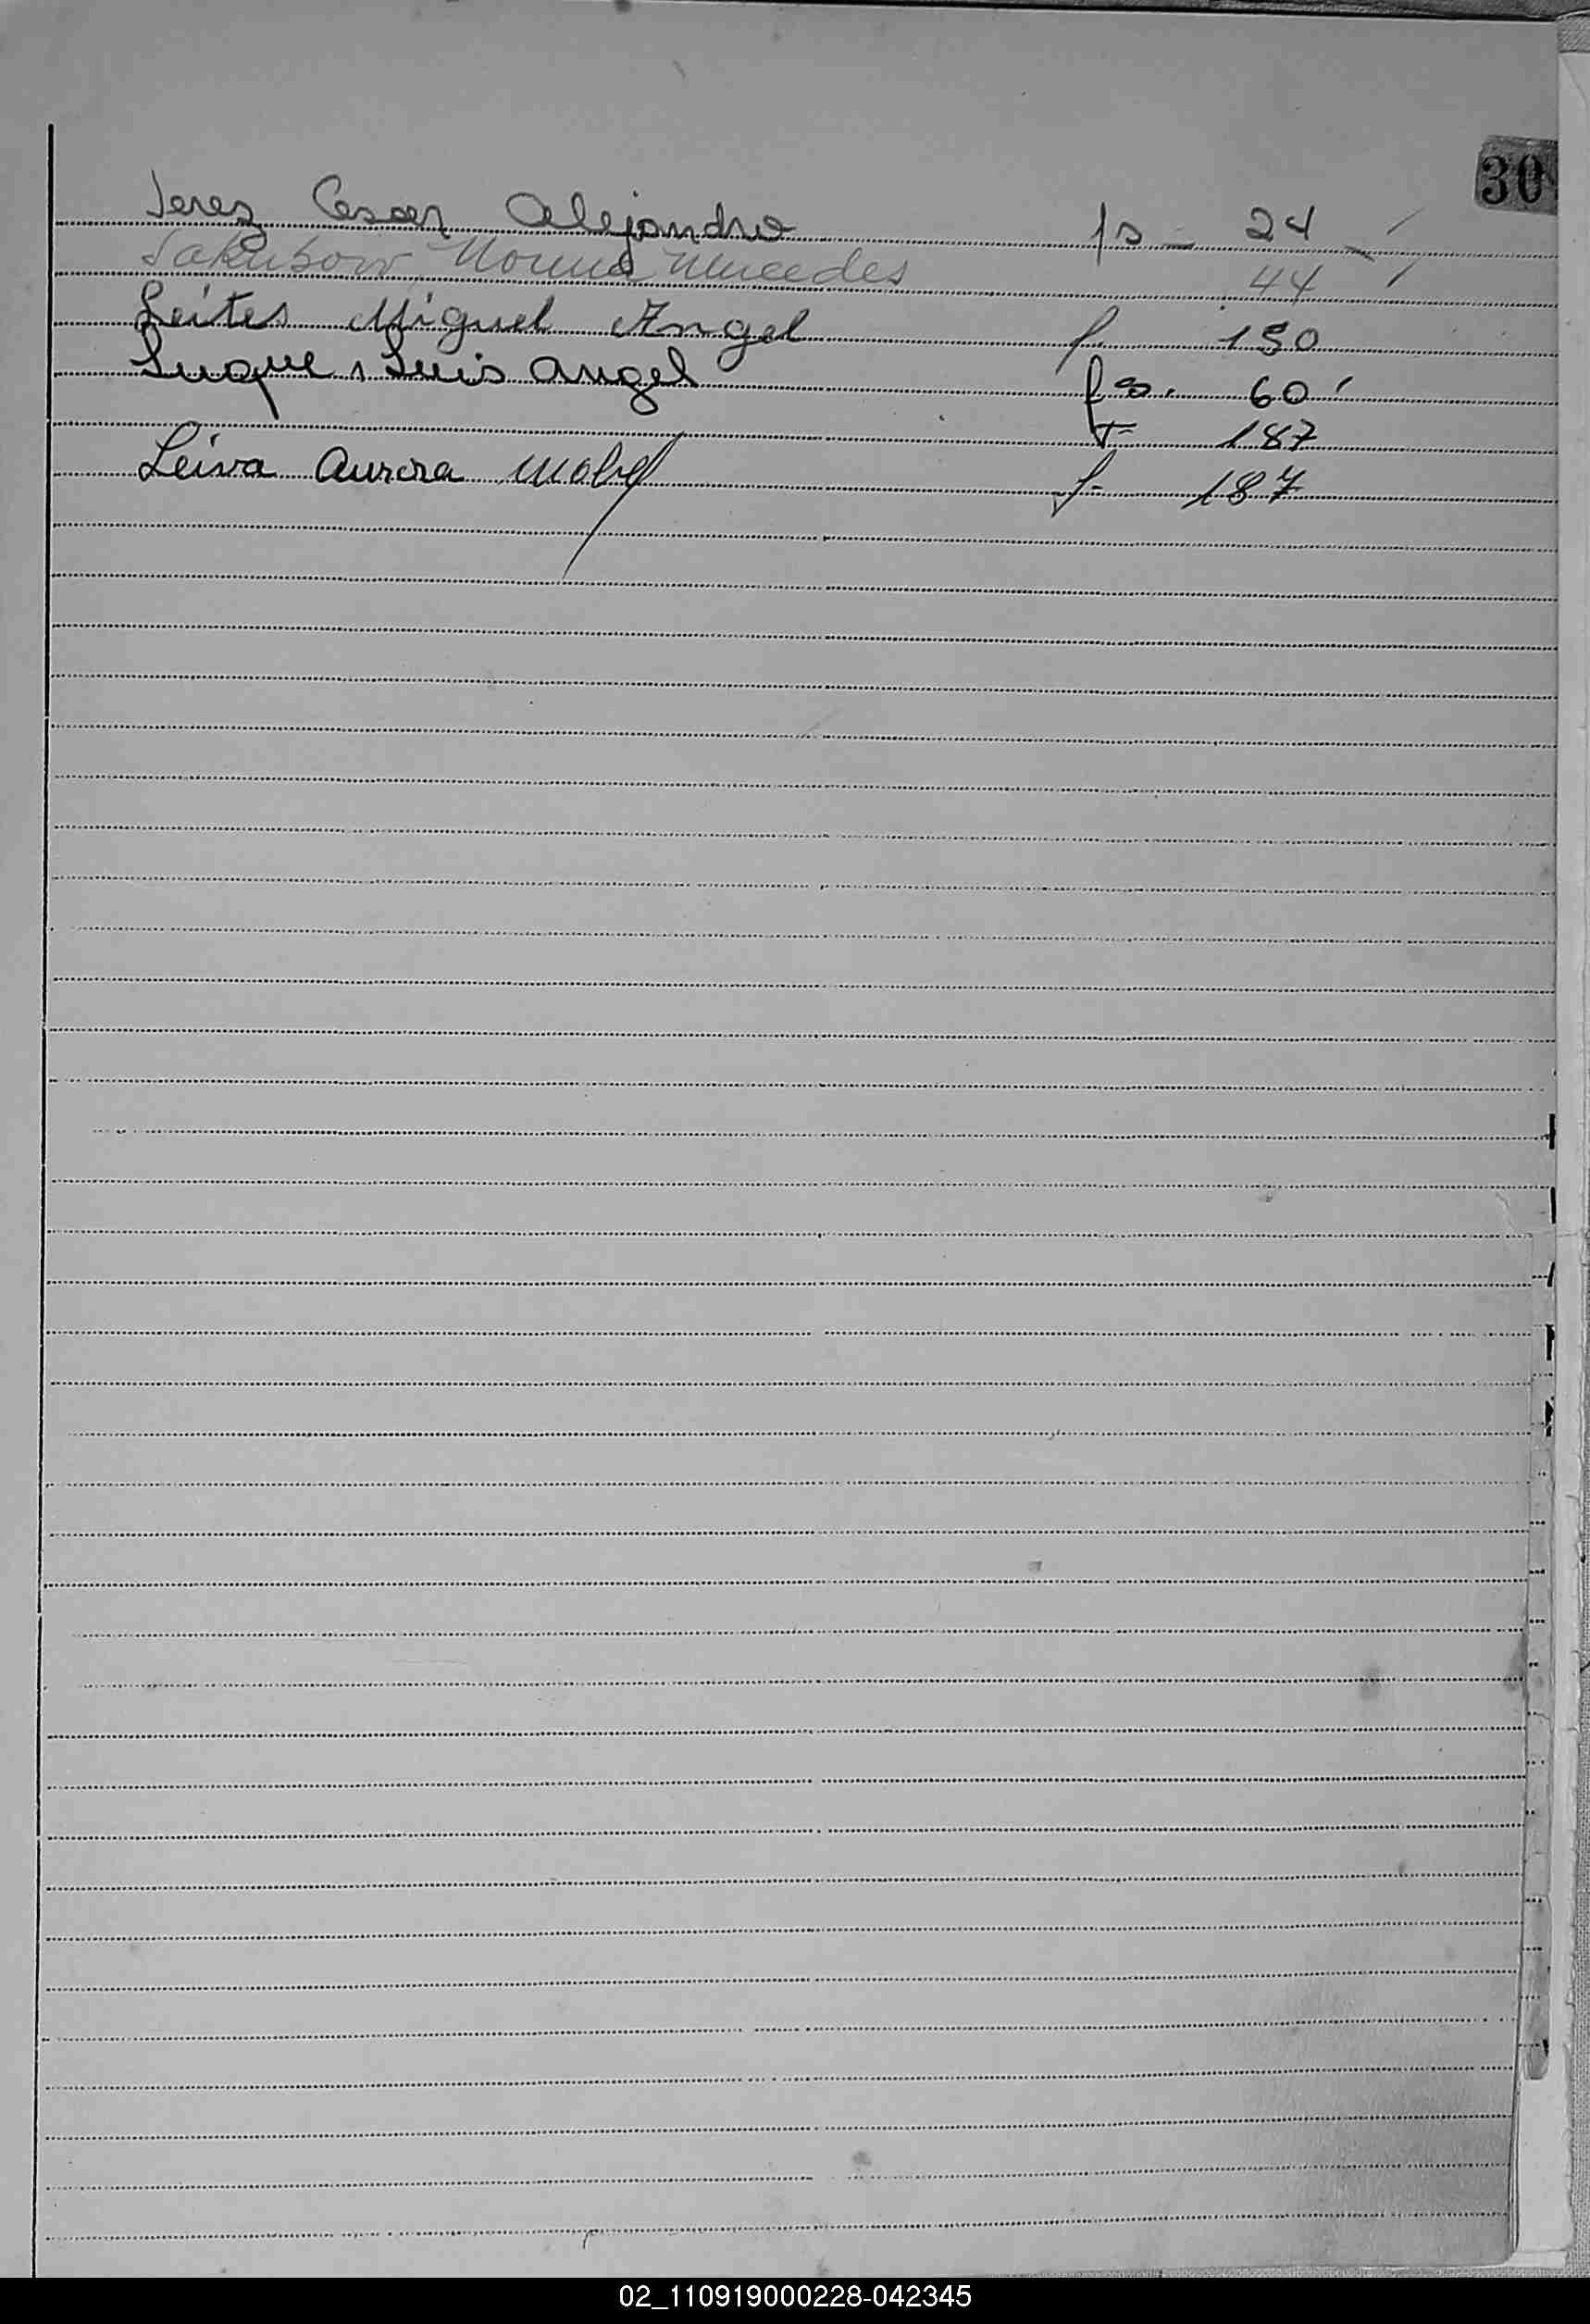 30
Jerez Cesar Alejandro fs - 24 -
Jakubow, Norma Mercedes 44
Leites Miguel Angel f. 150
Luque, Luis Angel fs. 60
F 187
Leiva Aurora Mabel f- 187
02_110919000228-042345